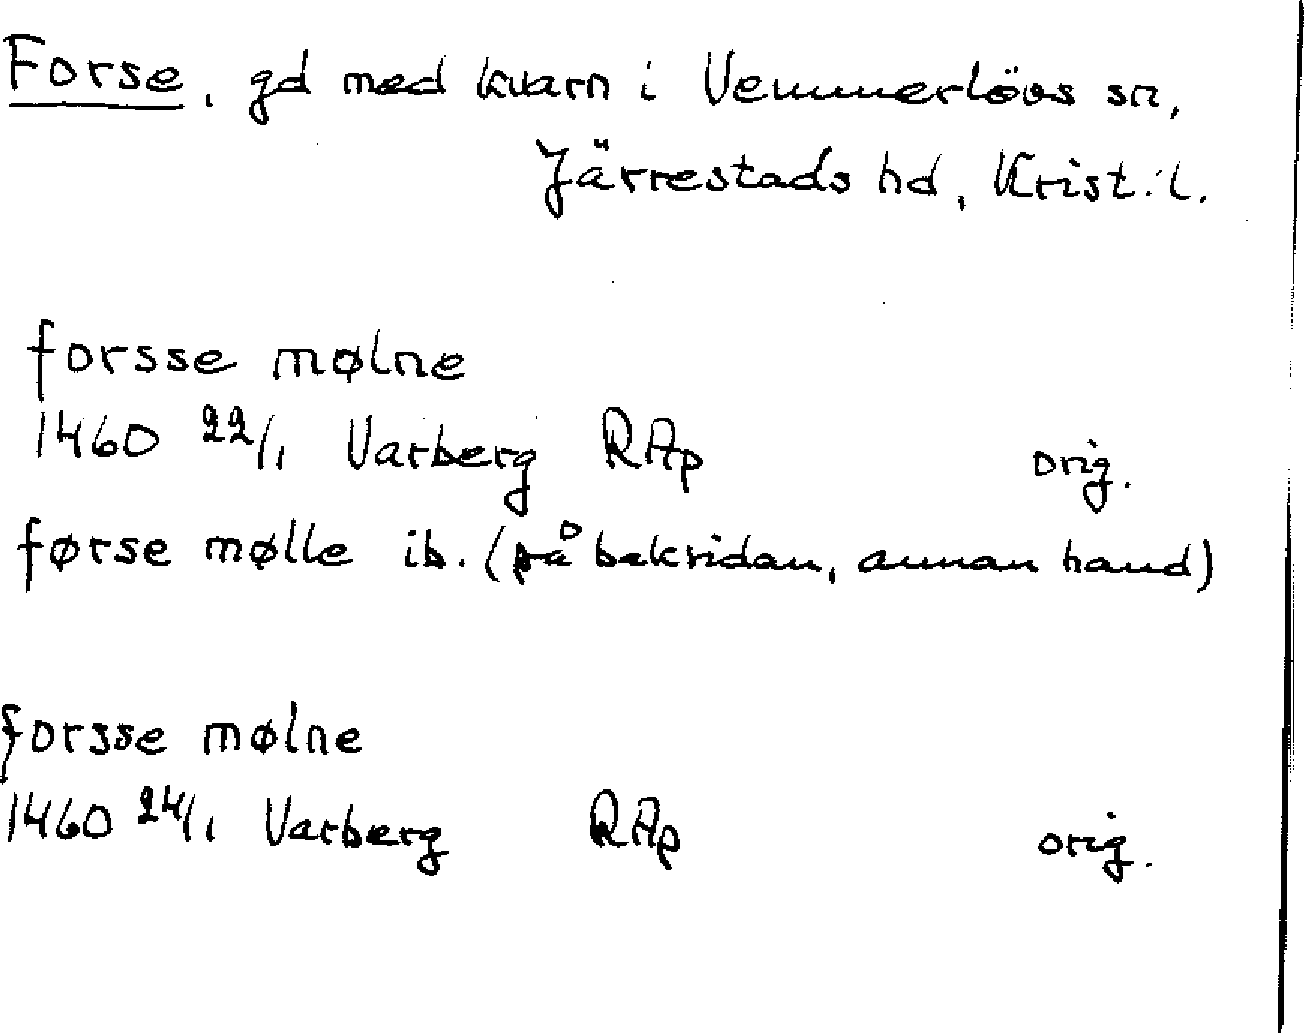 Forse, gd med kvarn i Vemmerlövs sn,
Järrestads hd, Krist. l.
forsse mølne
1460 22/1 Varberg RAp orig.
førse mølle ib. (på baksidan, annan hand)
forsse mølne
1460 24/1 Varberg RAp orig.